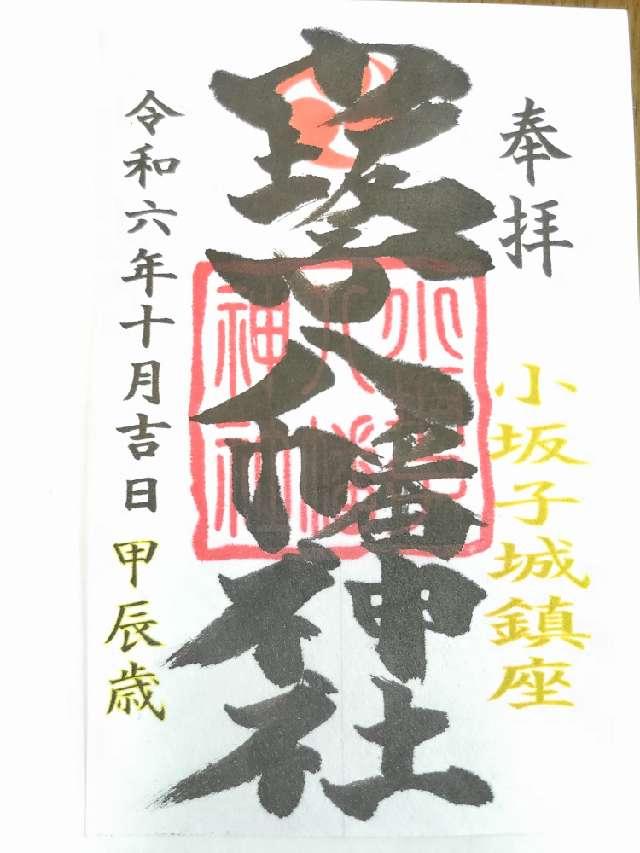 奉拝
小坂子城鎮座
八幡神社
令和六年十月吉日
甲辰歳